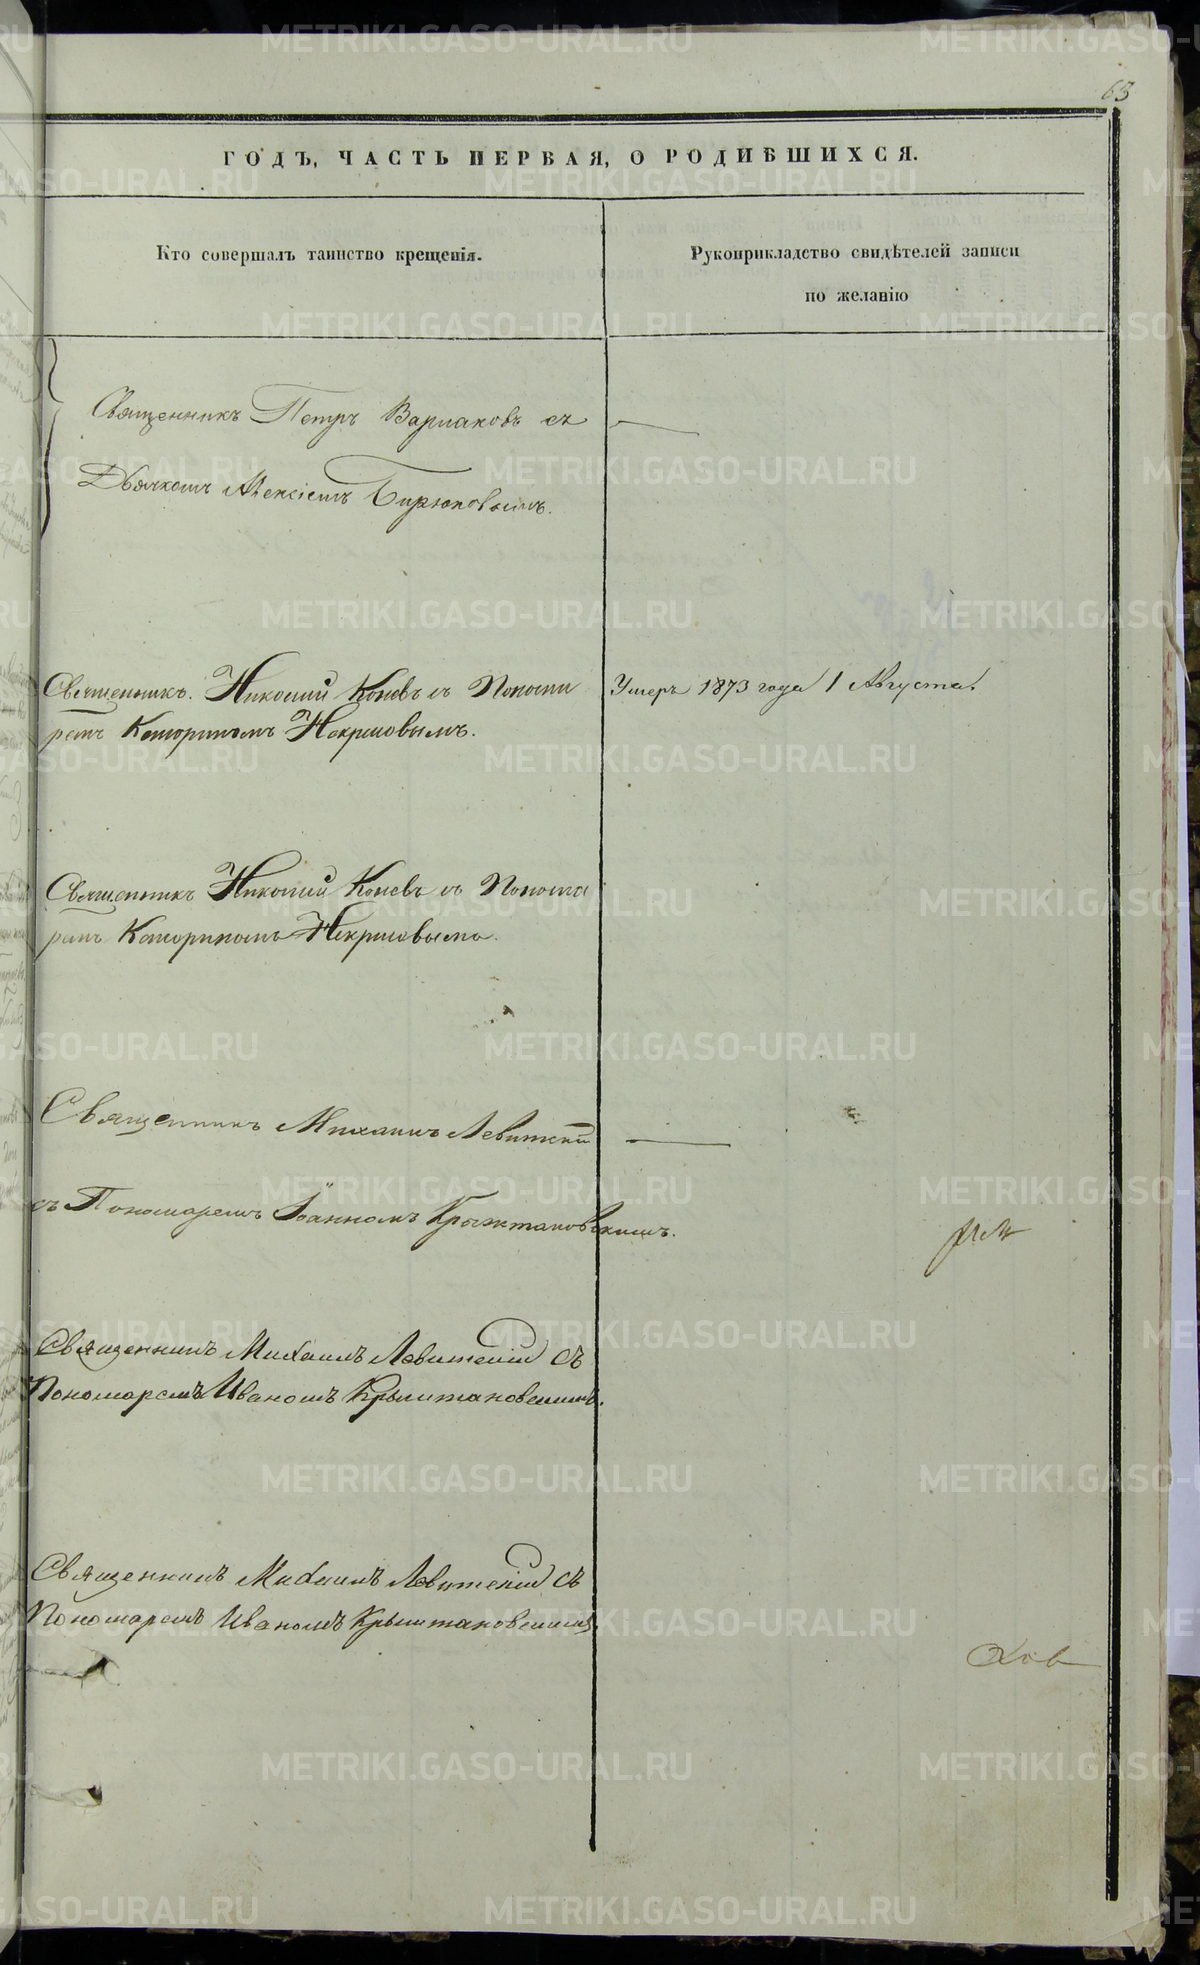 63
ГОДЪ, ЧАСТЬ ПЕРВАЯ, О РОДИВШИХСЯ.
Кто совершалъ таинство крещенія.
Рукоприкладство свидѣтелей записи
по желанію
Священникъ Петръ Варлаковъ съ
Дьячкомъ Алексіемъ Бирюковымъ.
Священникъ. Николай Коневъ съ Понома
ремъ Некрасовымъ.
Умеръ 1873 года 1 Августа.
Священникъ Николай Коневъ съ Понома
ремъ Некрасовымъ.
Священникъ Михаилъ Левитскій
съ Пономаремъ Іоанномъ Крыжтановскимъ.
Священникъ Михаилъ Левитскій съ
Пономаремъ Иваномъ Крыштановскимъ.
Священникъ Михаилъ Левитскій съ
Пономаремъ Иваномъ Крыштановскимъ
METRIKI.GASO-URAL.RU